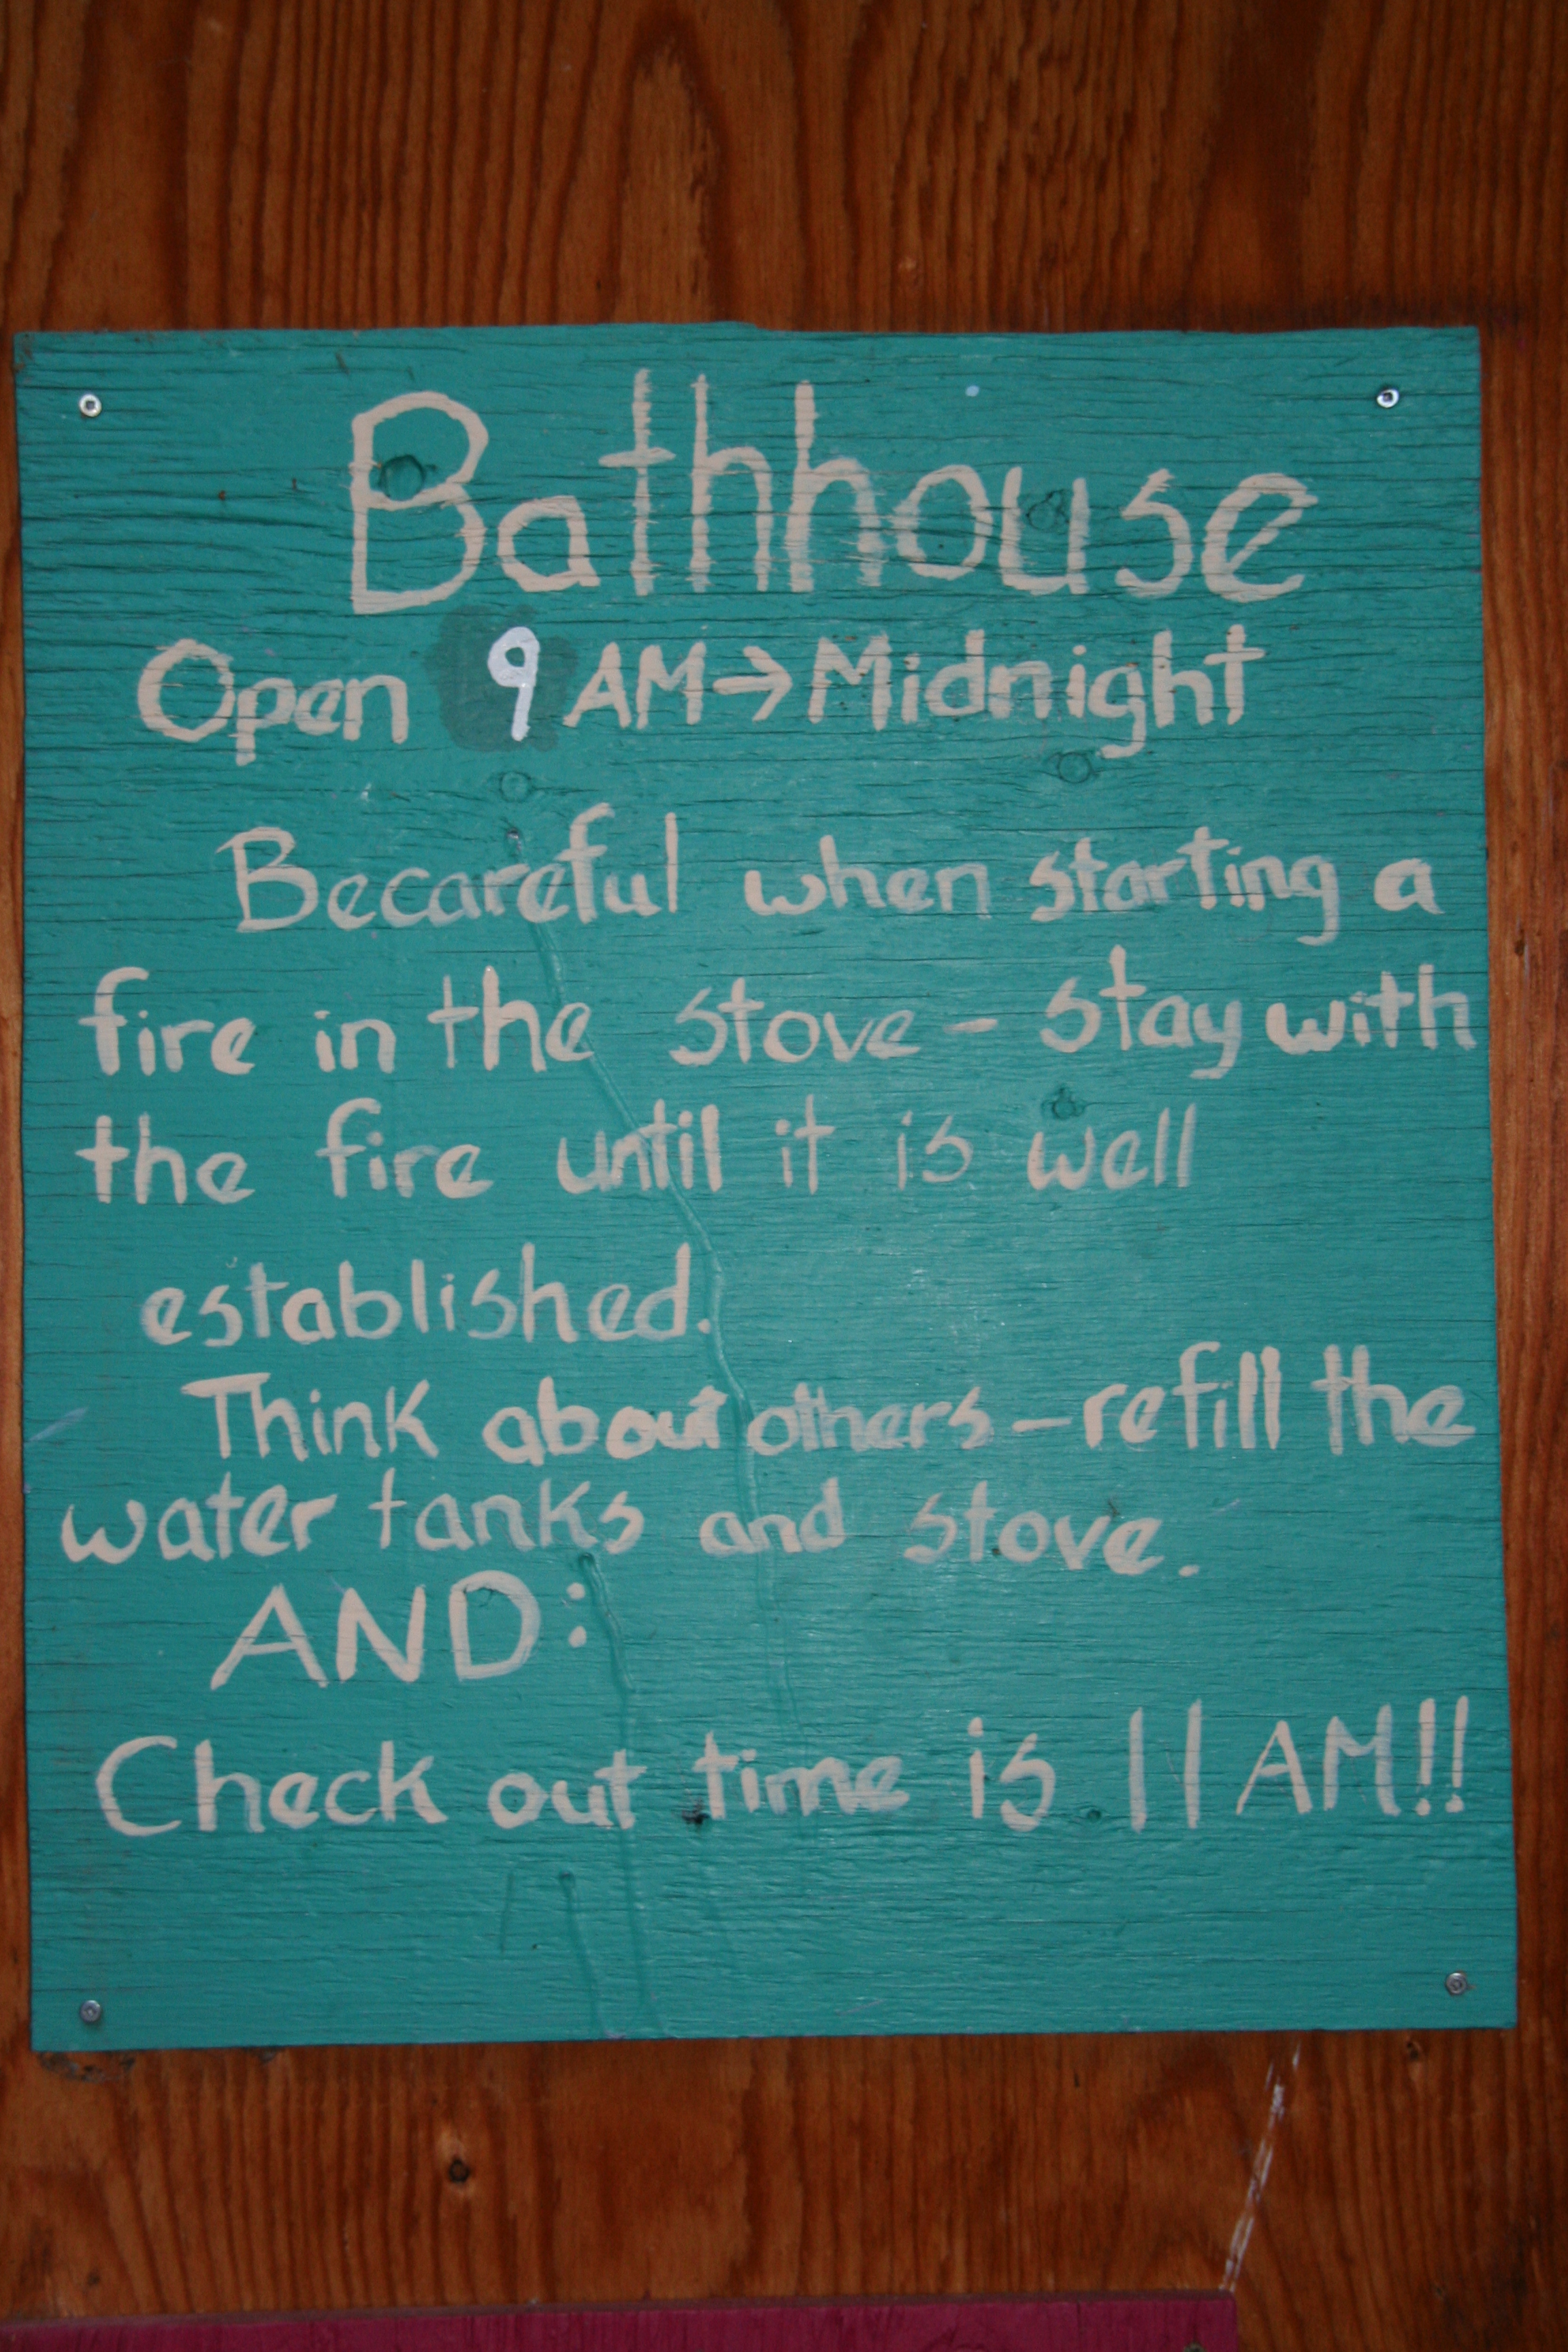 Bathhouse
Open 9 AM→Midnight
Becareful when starting a
fire in the stove - stay with
the fire until it is well
established.
Think about others - refill the
water tanks and stove.
AND:
Check out time is 11 AM!!